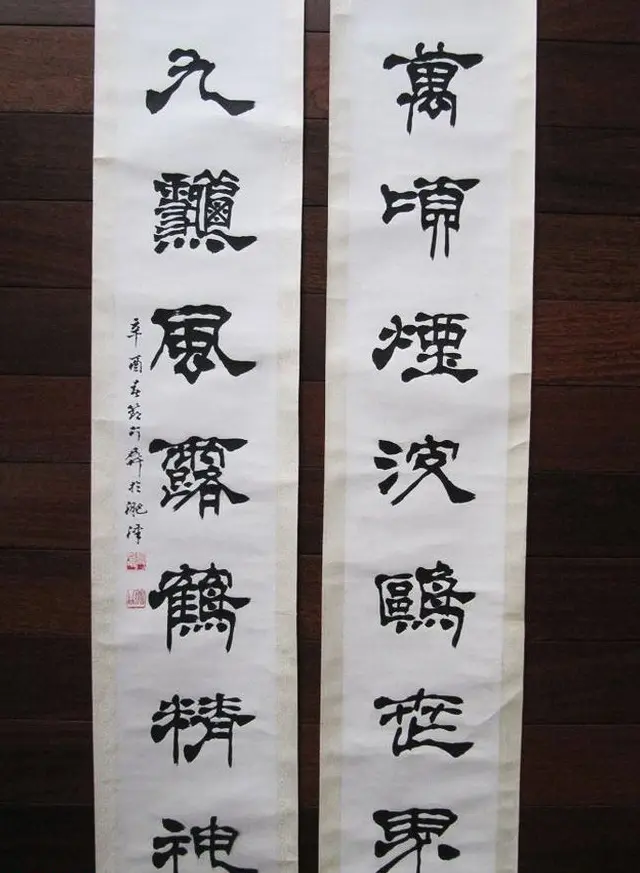 萬頃煙波鷗世界
九龝風露鶴精神
辛酉春節 於淝